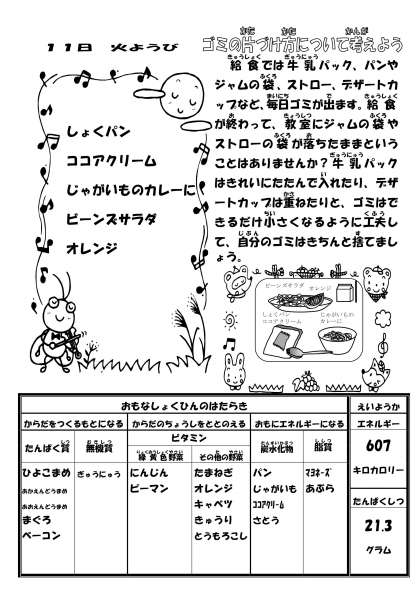 11日 火ようび
しょくパン
ココアクリーム
じゃがいものカレーに
ビーンズサラダ
オレンジ
ゴミの片づけ方について考えよう
給食では牛乳パック、パンや
ジャムの袋、ストロー、デザートカ
ップなど、毎日ゴミが出ます。給食
が終わって、教室にジャムの袋や
ストローの袋が落ちたままという
ことはありませんか？牛乳パック
はきれいにたたんで入れたり、デザ
ートカップは重ねたりと、ゴミはで
きるだけ小さくなるように工夫し
て、自分のゴミはきちんと捨てまし
ょう。
ビーンズサラダ オレンジ
しょくパン
ココアクリーム
じゃがいもの
カレーに
おもなしょくひんのはたらき
えいようか
からだをつくるもとになる
からだのちょうしをととのえる
おもにエネルギーになる
エネルギー
たんぱく質
無機質
ビタミン
緑黄色野菜
その他の野菜
炭水化物
脂質
607
キロカロリー
ひよこまめ
あかえんどうまめ
あおえんどうまめ
まぐろ
ベーコン
ぎゅうにゅう
にんじん
ピーマン
たまねぎ
オレンジ
キャベツ
きゅうり
とうもろこし
パン
じゃがいも
ココアクリーム
さとう
マヨネーズ
あぶら
たんぱくしつ
21.3
グラム